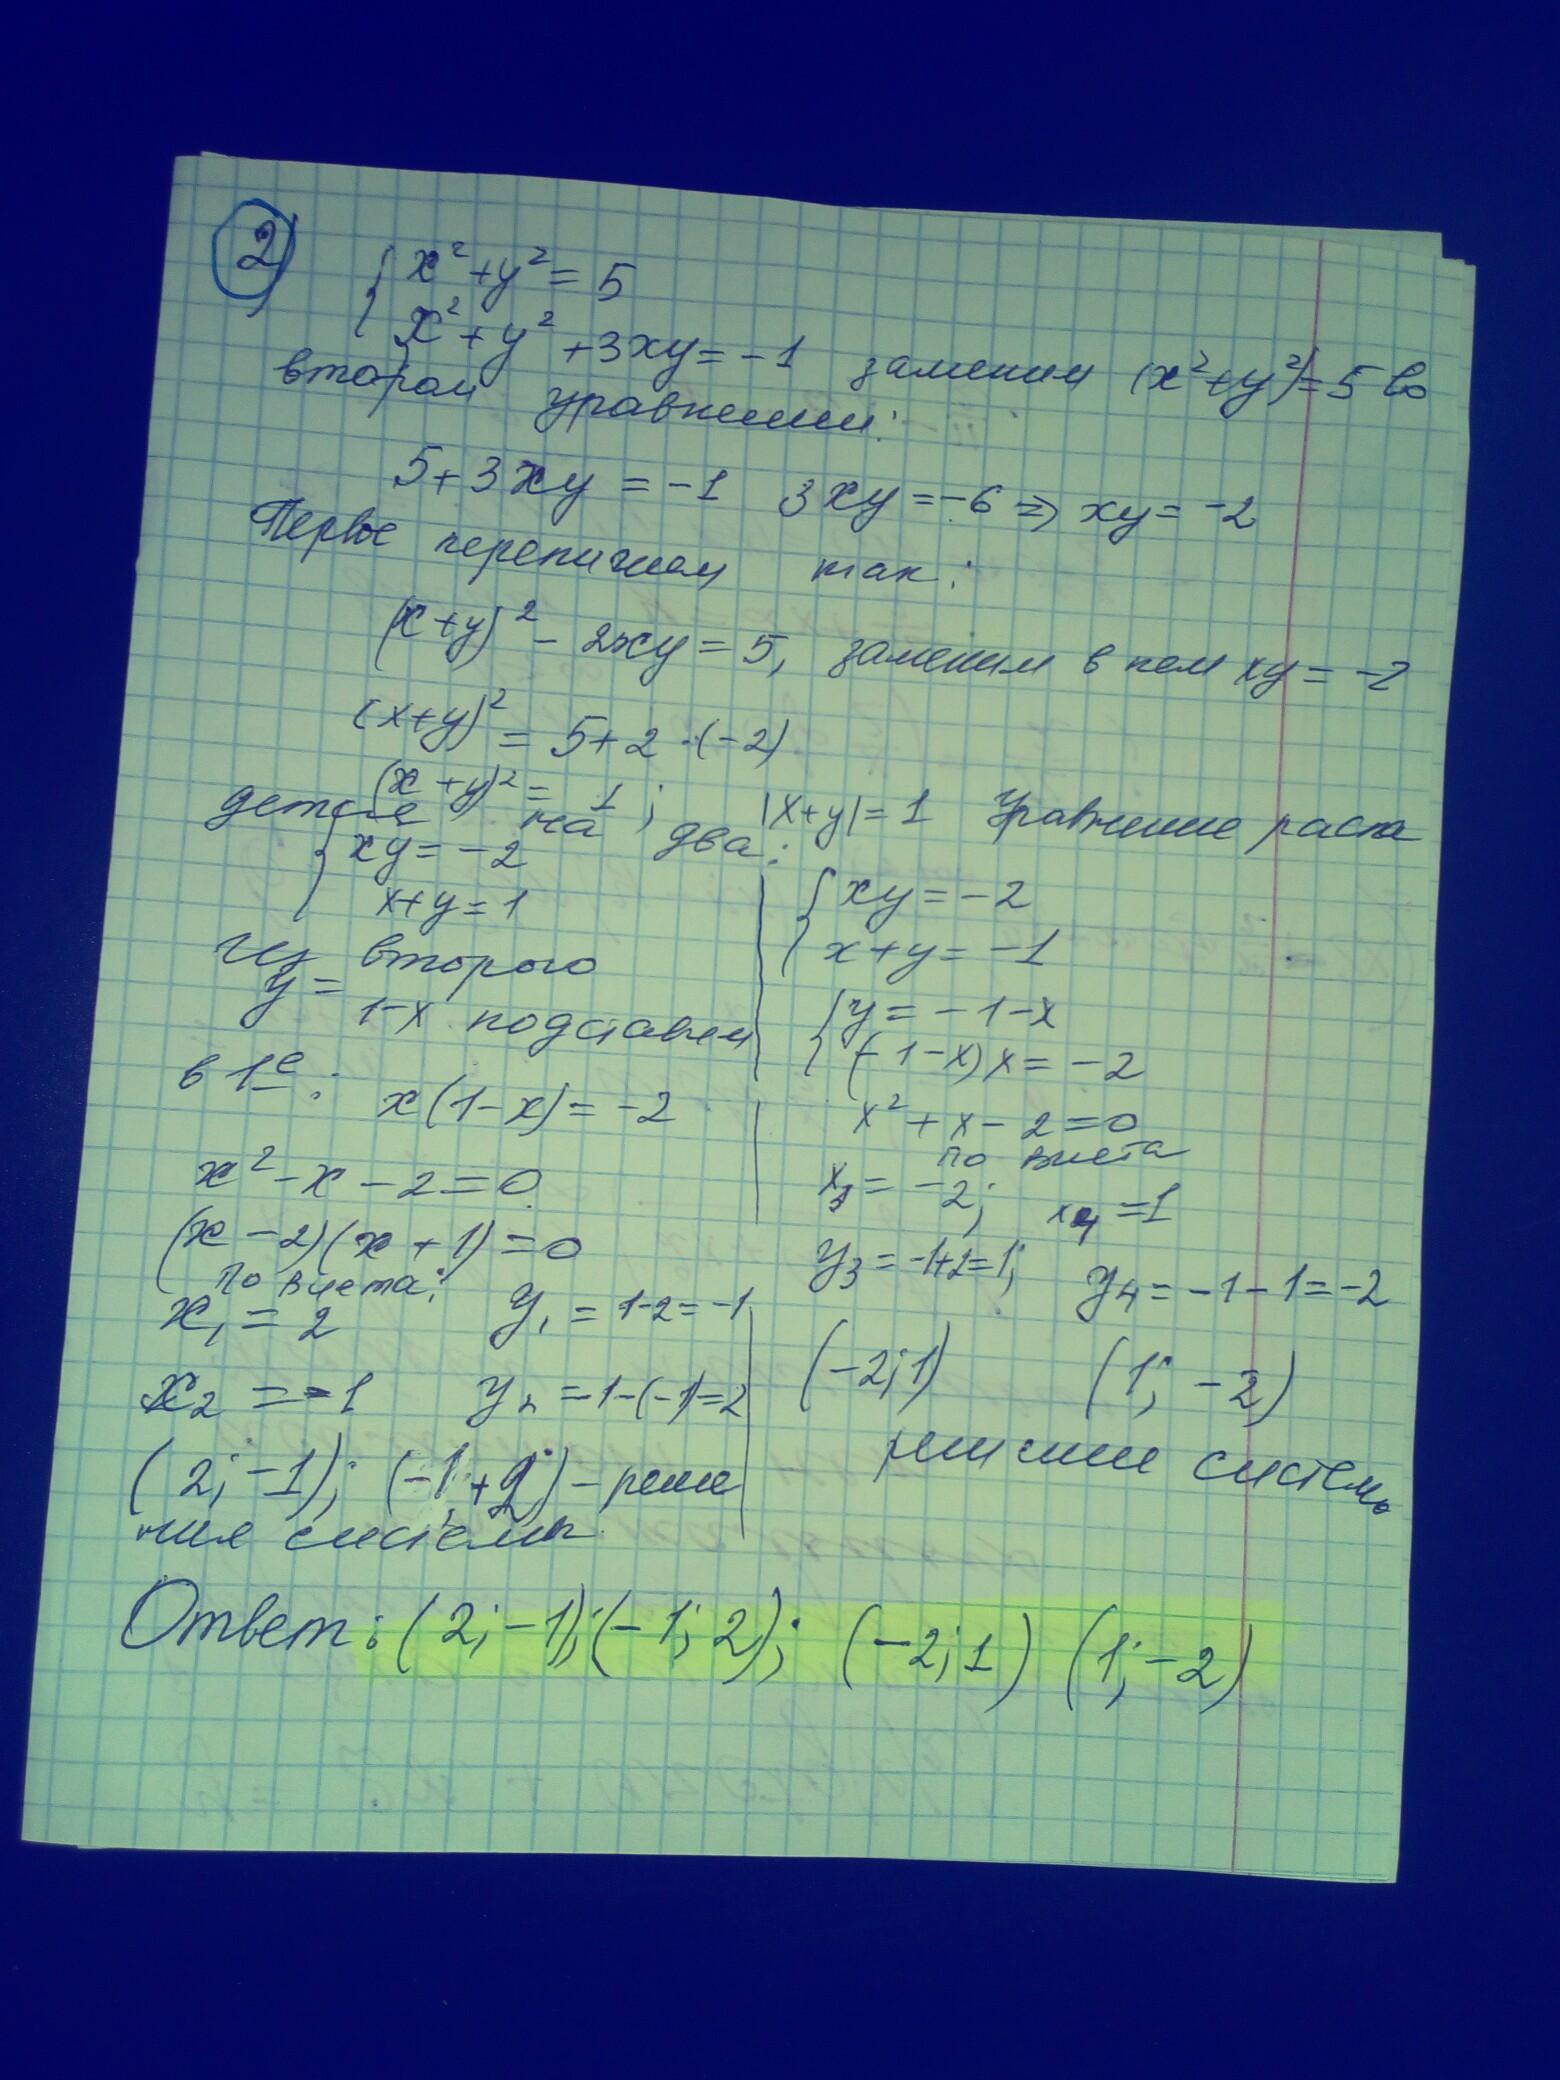 2)
{ x² + y² = 5
x² + y² + 3xy = -1 заменим (x² + y²) = 5 во
втором уравнении:
5 + 3xy = -1 3xy = -6 => xy = -2
Первое перепишем так:
(x+y)² - 2xy = 5, заменим в нем xy = -2
(x+y)² = 5 + 2 · (-2)
(x+y)² = 1; |x+y| = 1 Уравнение распа
дется на два:
{ xy = -2
x+y = 1
Из второго
y = 1-x подставим
в 1е: x(1-x) = -2
x² - x - 2 = 0
(x - 2)(x + 1) = 0
по виета:
x₁ = 2 y₁ = 1-2 = -1
x₂ = -1 y₂ = 1-(-1) = 2
(2; -1); (-1; +2) - реше
ния системы.
{ xy = -2
x + y = -1
{ y = -1-x
(-1-x)x = -2
x² + x - 2 = 0
по виета
x₃ = -2; x₄ = 1
y₃ = -1+2 = 1; y₄ = -1-1 = -2
(-2; 1) (1; -2)
решение системы
Ответ: (2; -1); (-1; 2); (-2; 1) (1; -2)